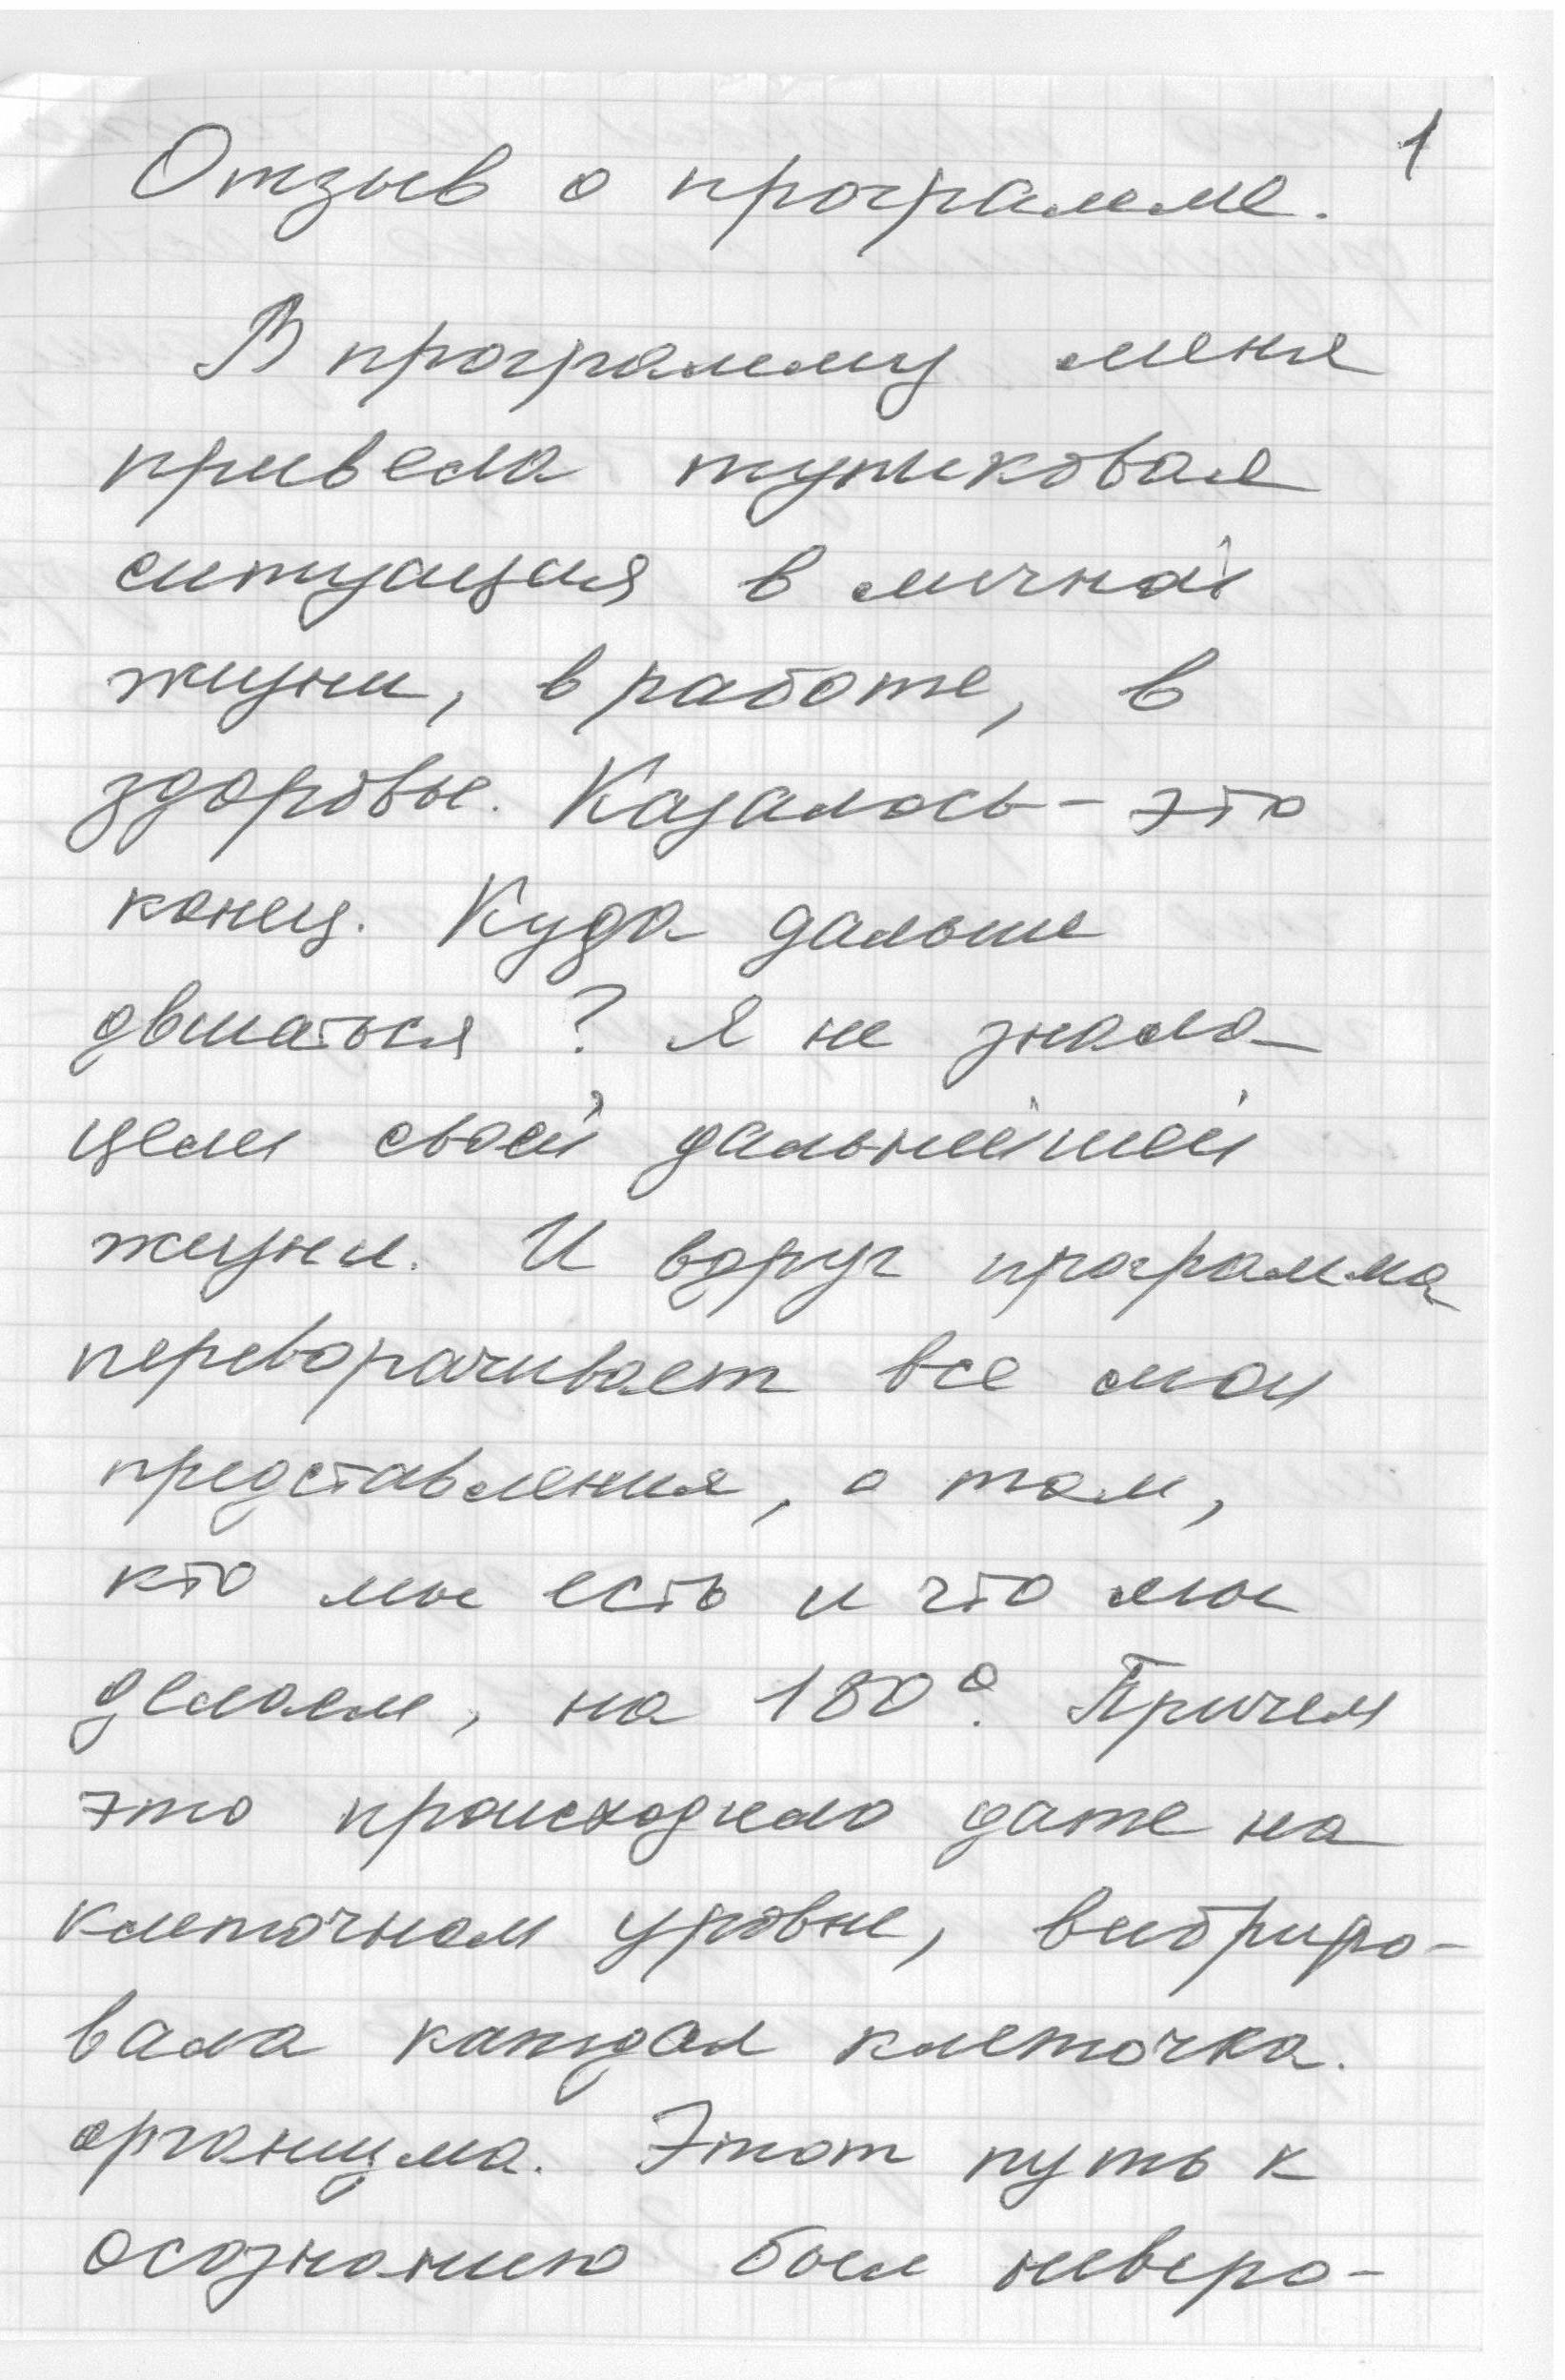 1
Отзыв о программе.
В программу меня
привела тупиковая
ситуация в личной
жизни, в работе, в
здоровье. Казалось - это
конец. Куда дальше
двигаться? Я не знала
цели своей дальнейшей
жизни. И вдруг программа
переворачивает все мои
представления, о том,
кто мы есть и что мы
делаем, на 180°. Причем
это происходило даже на
клеточном уровне, вибриро-
вала каждая клеточка.
организма. Этот путь к
осознанию был неверо-